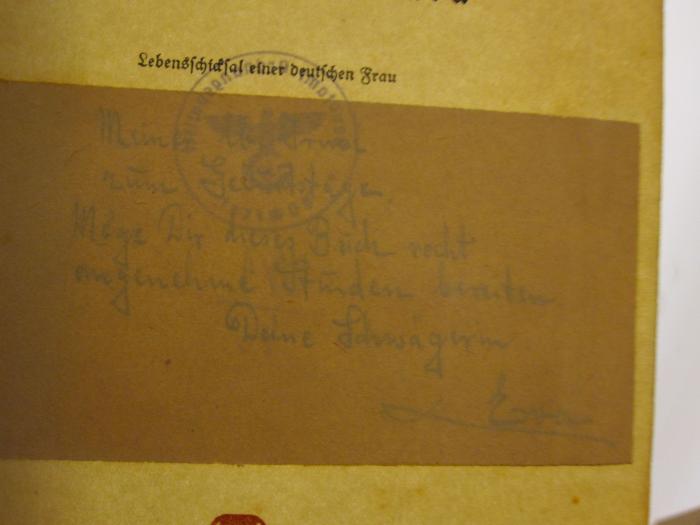 Lebensschicksal einer deutschen Frau
Meiner lb.
zum Geburtstage.
Möge Dir dieses Buch recht
angenehme Stunden bereiten
Deine Schwägerin
Eva